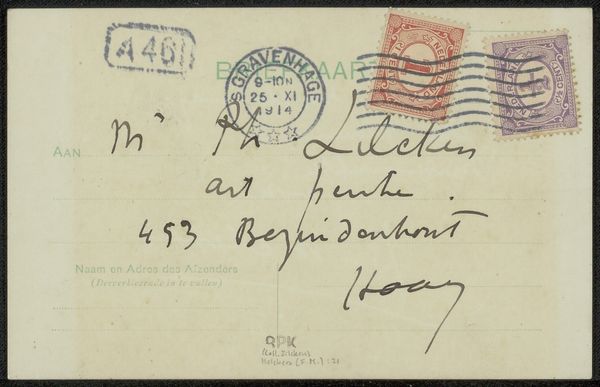 A 46
B AAR
'S GRAVENHAGE
9-10N
25·XI
1914
NED
1
AAN
Mr Ph. Zilcken
art peintre.
493 Bezuidenhout
Haag
Naam en Adres des Afzenders
(Desverkiezende in te vullen)
RPK
(Coll. Zilcken)
Melchers (F.M.):21